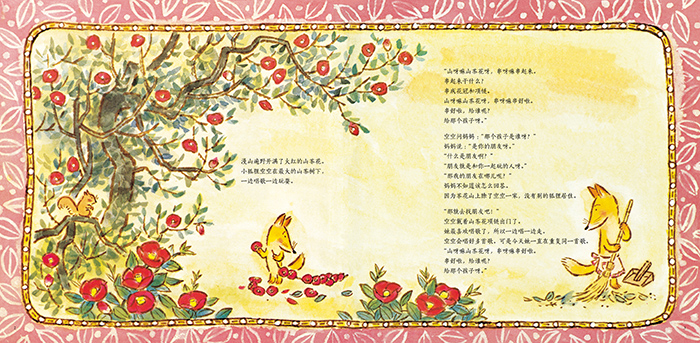 漫山遍野开满了火红的山茶花。
小狐狸空空在最大的山茶树下，
一边唱歌一边玩耍。
“山呀嘛山茶花呀，串呀嘛串起来。
串起来干什么？
串成花冠和项链。
山呀嘛山茶花呀，串呀嘛串舒啦。
串舒啦，给谁呢？
给那个孩子呀。”
空空问妈妈：“那个孩子是谁呀？”
妈妈说：“是你的朋友呀。”
“什么是朋友啊？”
“朋友就是和你一起玩的人呀。”
“那我的朋友在哪儿呢？”
妈妈不知道该怎么回答。
因为茶花山上除了空空一家，没有别的狐狸居住。
“那就去找朋友吧！”
空空戴着山茶花项链出门了。
她最喜欢唱歌了，所以一边唱一边走。
空空会唱好多首歌，可是今天她一直在重复同一首歌。
“山呀嘛山茶花呀，串呀嘛串舒啦。
串舒啦，给谁呢？
给那个孩子呀。”